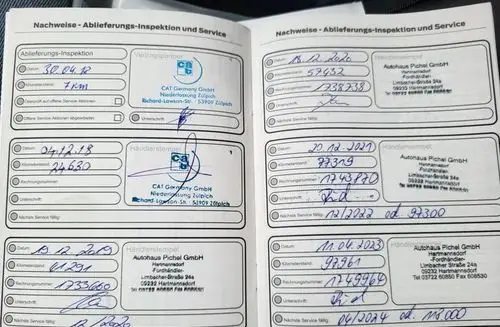 Nachweise - Ablieferungs-Inspektion und Service
Ablieferungs-Inspektion
Datum: 30.04.18
Kilometerstand: 7 km
Überprüft auf offene Service Aktionen:
Offene Service Aktionen abgearbeitet:
Unterschrift:
cat
CAT Germany GmbH
Niederlassung Zülpich
Richard-Lawson-Str. 53909 Zülpich
Datum: 24.12.18
Kilometerstand: 24630
Rechnungsnummer:
Unterschrift:
Nächste Service fällig:
Händlerstempel
cat
CAT Germany GmbH
Niederlassung Zülpich
Richard-Lawson-Str. 53909 Zülpich
Datum: 19.12.2019
Kilometerstand: 41291
Rechnungsnummer:
Unterschrift:
Nächste Service fällig: 12/2020
Händlerstempel
Autohaus Pichel GmbH
Hartmannsdorf
-Fordhändler-
Limbacher-Straße 24a
09232 Hartmannsdorf
Nachweise - Ablieferungs-Inspektion und Service
Datum: 18.12.2020
Kilometerstand: 57432
Rechnungsnummer: 1738738
Unterschrift:
Nächste Service fällig:
Autohaus Pichel GmbH
Hartmannsdorf
-Fordhändler-
Limbacher-Straße 24a
09232 Hartmannsdorf
Datum: 20.12.2021
Kilometerstand: 77319
Rechnungsnummer: 1743870
Unterschrift:
Nächste Service fällig: 12/2022 od. 97300
Autohaus Pichel GmbH
Hartmannsdorf
-Fordhändler-
Limbacher-Straße 24a
09232 Hartmannsdorf
Datum: 11.04.2023
Kilometerstand: 97961
Rechnungsnummer: 1749964
Unterschrift:
Nächste Service fällig: 04/2024 od.
Händlerstempel
Autohaus Pichel GmbH
Hartmannsdorf
-Fordhändler-
Limbacher-Straße 24a
09232 Hartmannsdorf
Tel 03722 60850 Fax 608530